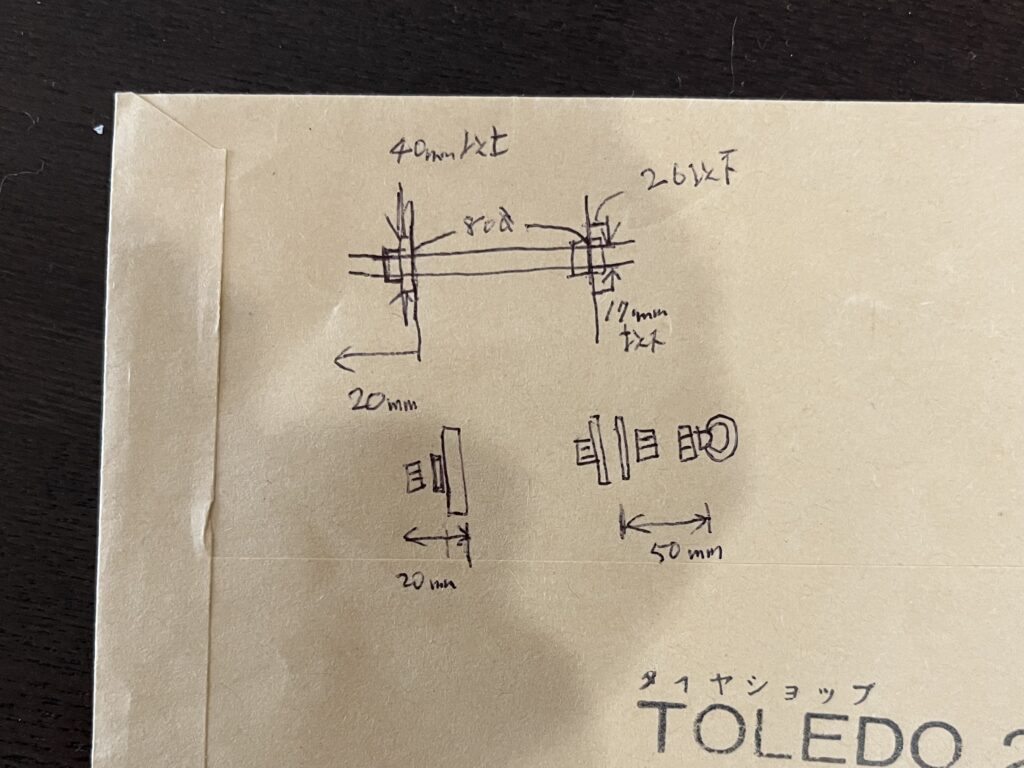 40mm以上
26以下
80Ω
17mm
以下
20mm
20mm
50mm
タイヤショップ
TOLEDO 2